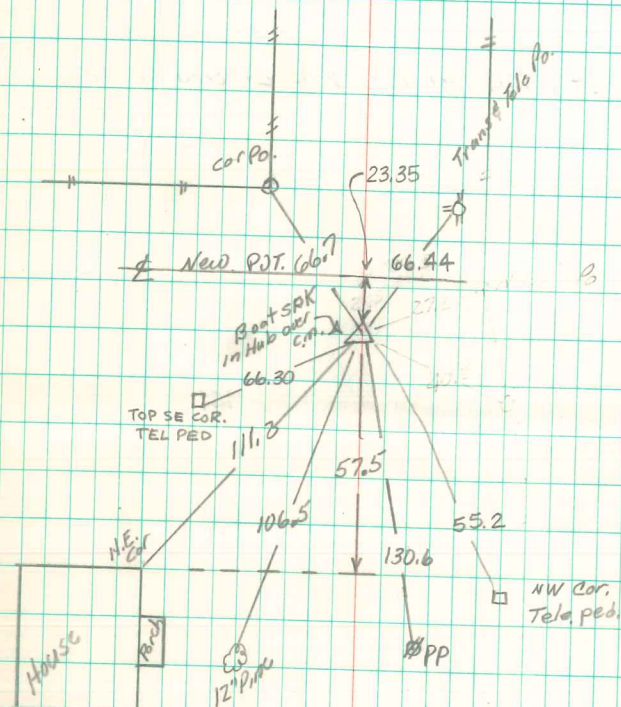 Trans & Tele Po.
Cor Po.
23.35
New PJT.
66.7
66.44
Boat SPK
in Hub over
c.m.
66.30
TOP SE COR.
TEL PED
57.5
106.5
55.2
130.6
N.E.
Cor
NW Cor.
Tele. ped.
House
Porch
12" Pine
PP